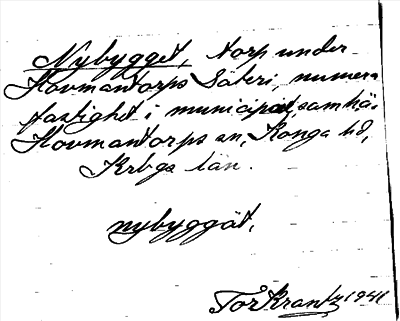 Nybygget, torp under
Hovmantorps Säteri, numera
fastighet i municipalsamhä.
Hovmantorps sn, Konga hd,
Krbgs län.
nybyggät.
Tor Krantz 1941